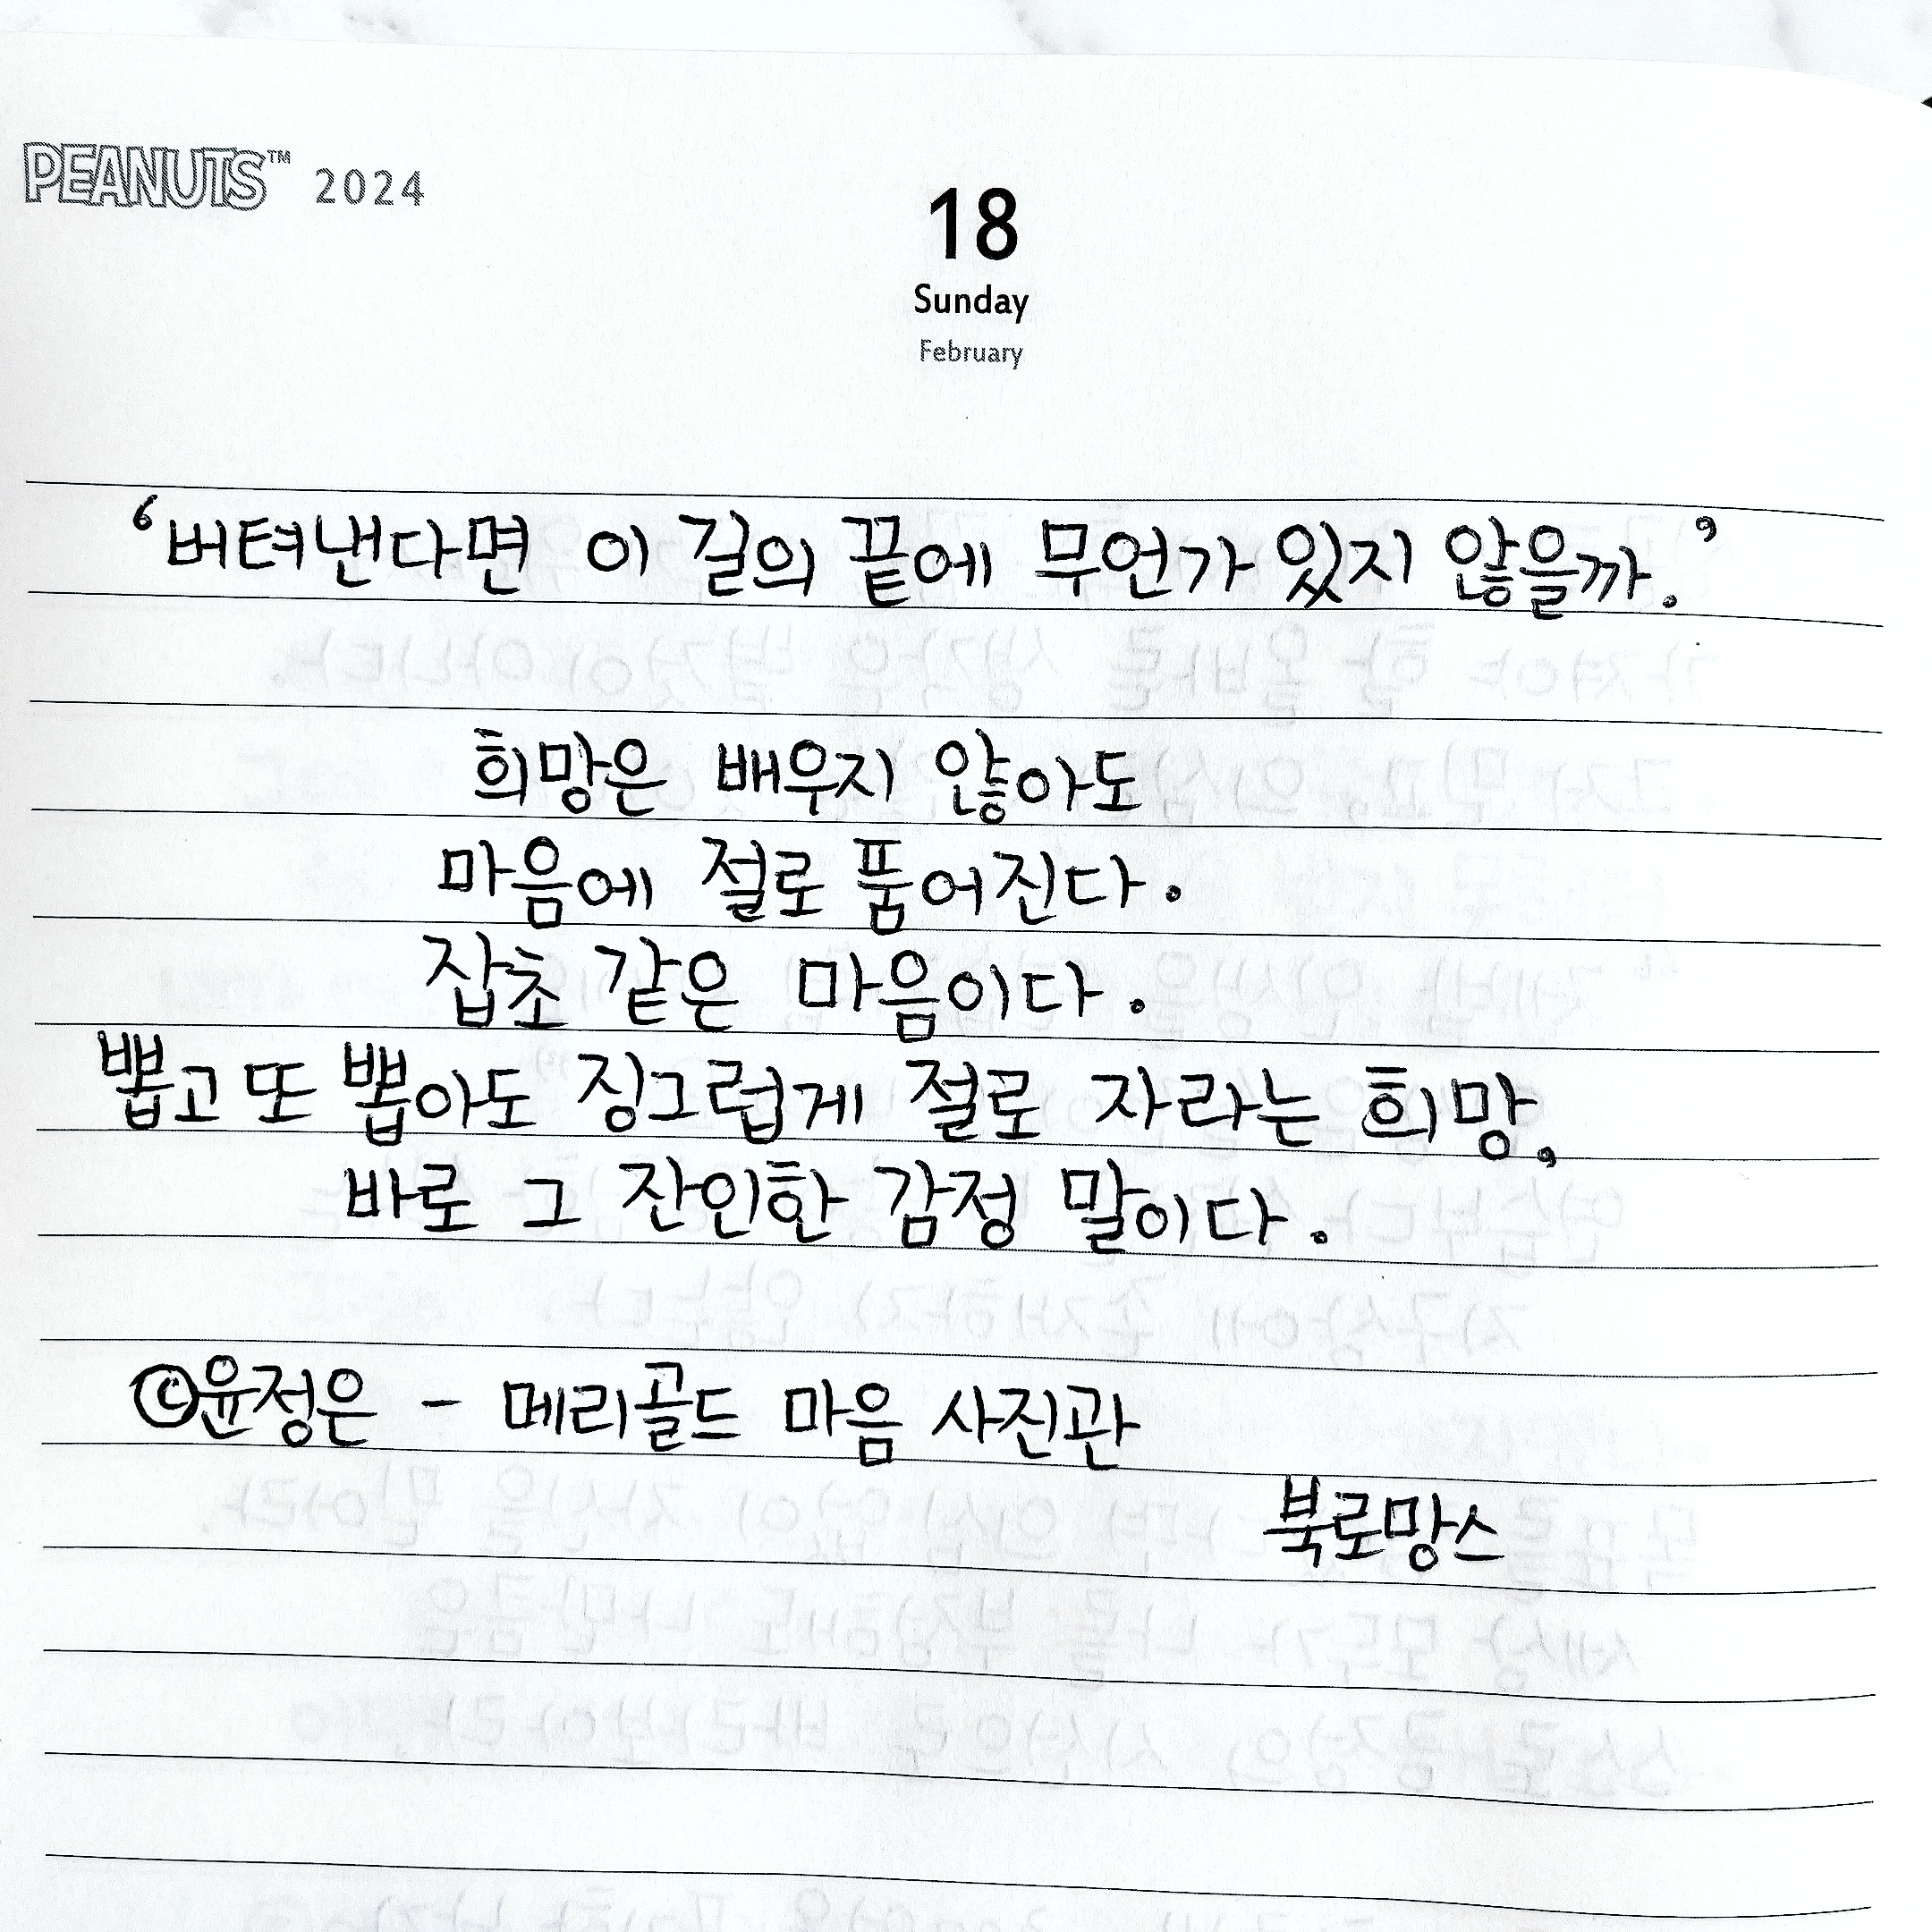 PEANUTS™ 2024
18
Sunday
February
‘버텨낸다면 이 길의 끝에 무언가 있지 않을까.’
희망은 배우지 않아도
마음에 절로 품어진다.
잡초 같은 마음이다.
뽑고 또 뽑아도 징그럽게 절로 자라는 희망,
바로 그 잔인한 감정 말이다.
©윤정은 - 메리골드 마음 사진관
북로망스